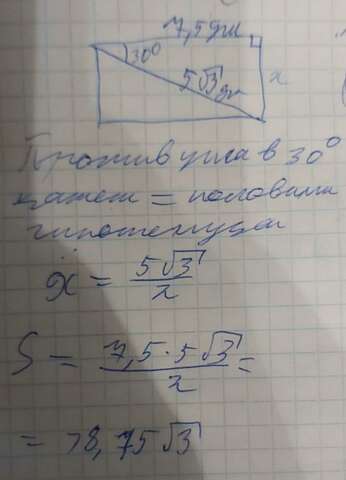 7,5 дм
30°
5√3 дм
x
Против угла в 30°
катет = половине
гипотенузы
x = 5√3/2
S = 7,5·5√3/2 =
= 18,75√3